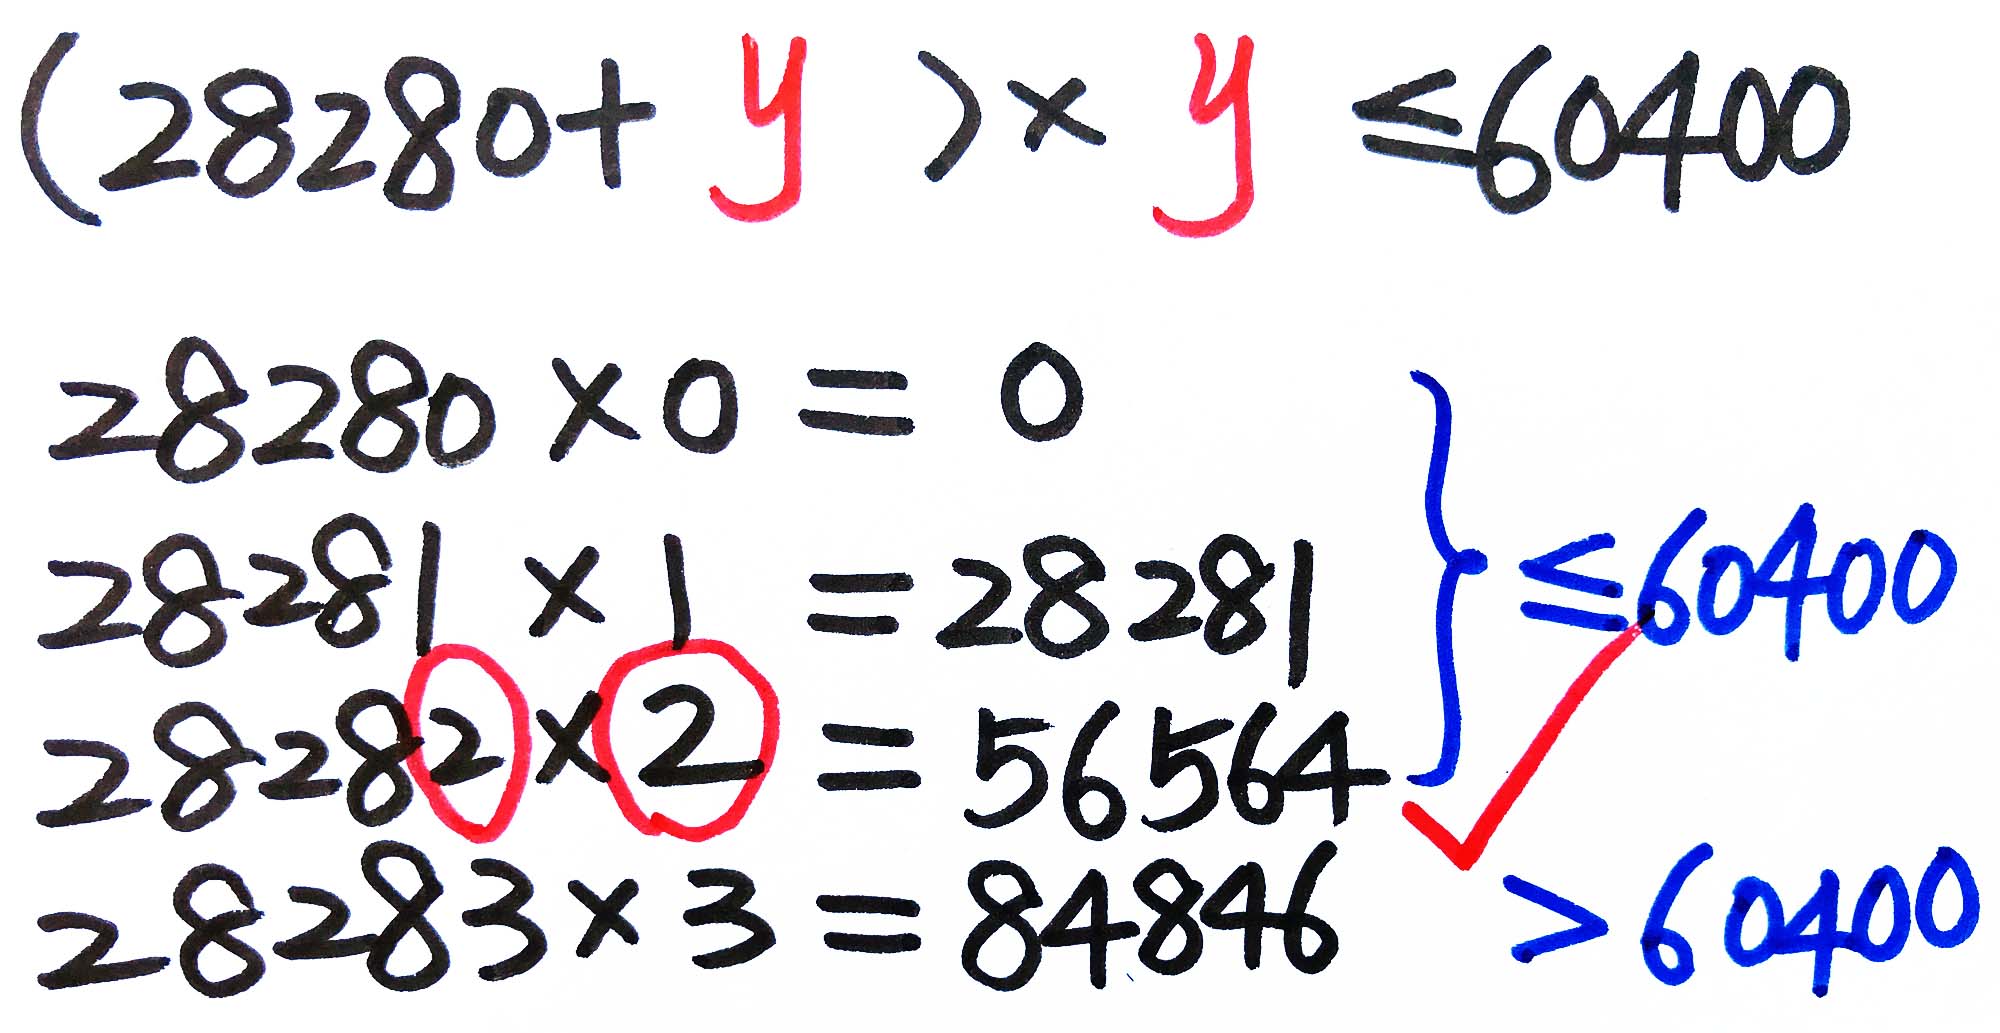 (28280+ y )× y ≤60400
28280 ×0= 0
28281 ×1 =28281 ≤60400
28282×2 =56564
28283×3 =84846 >60400